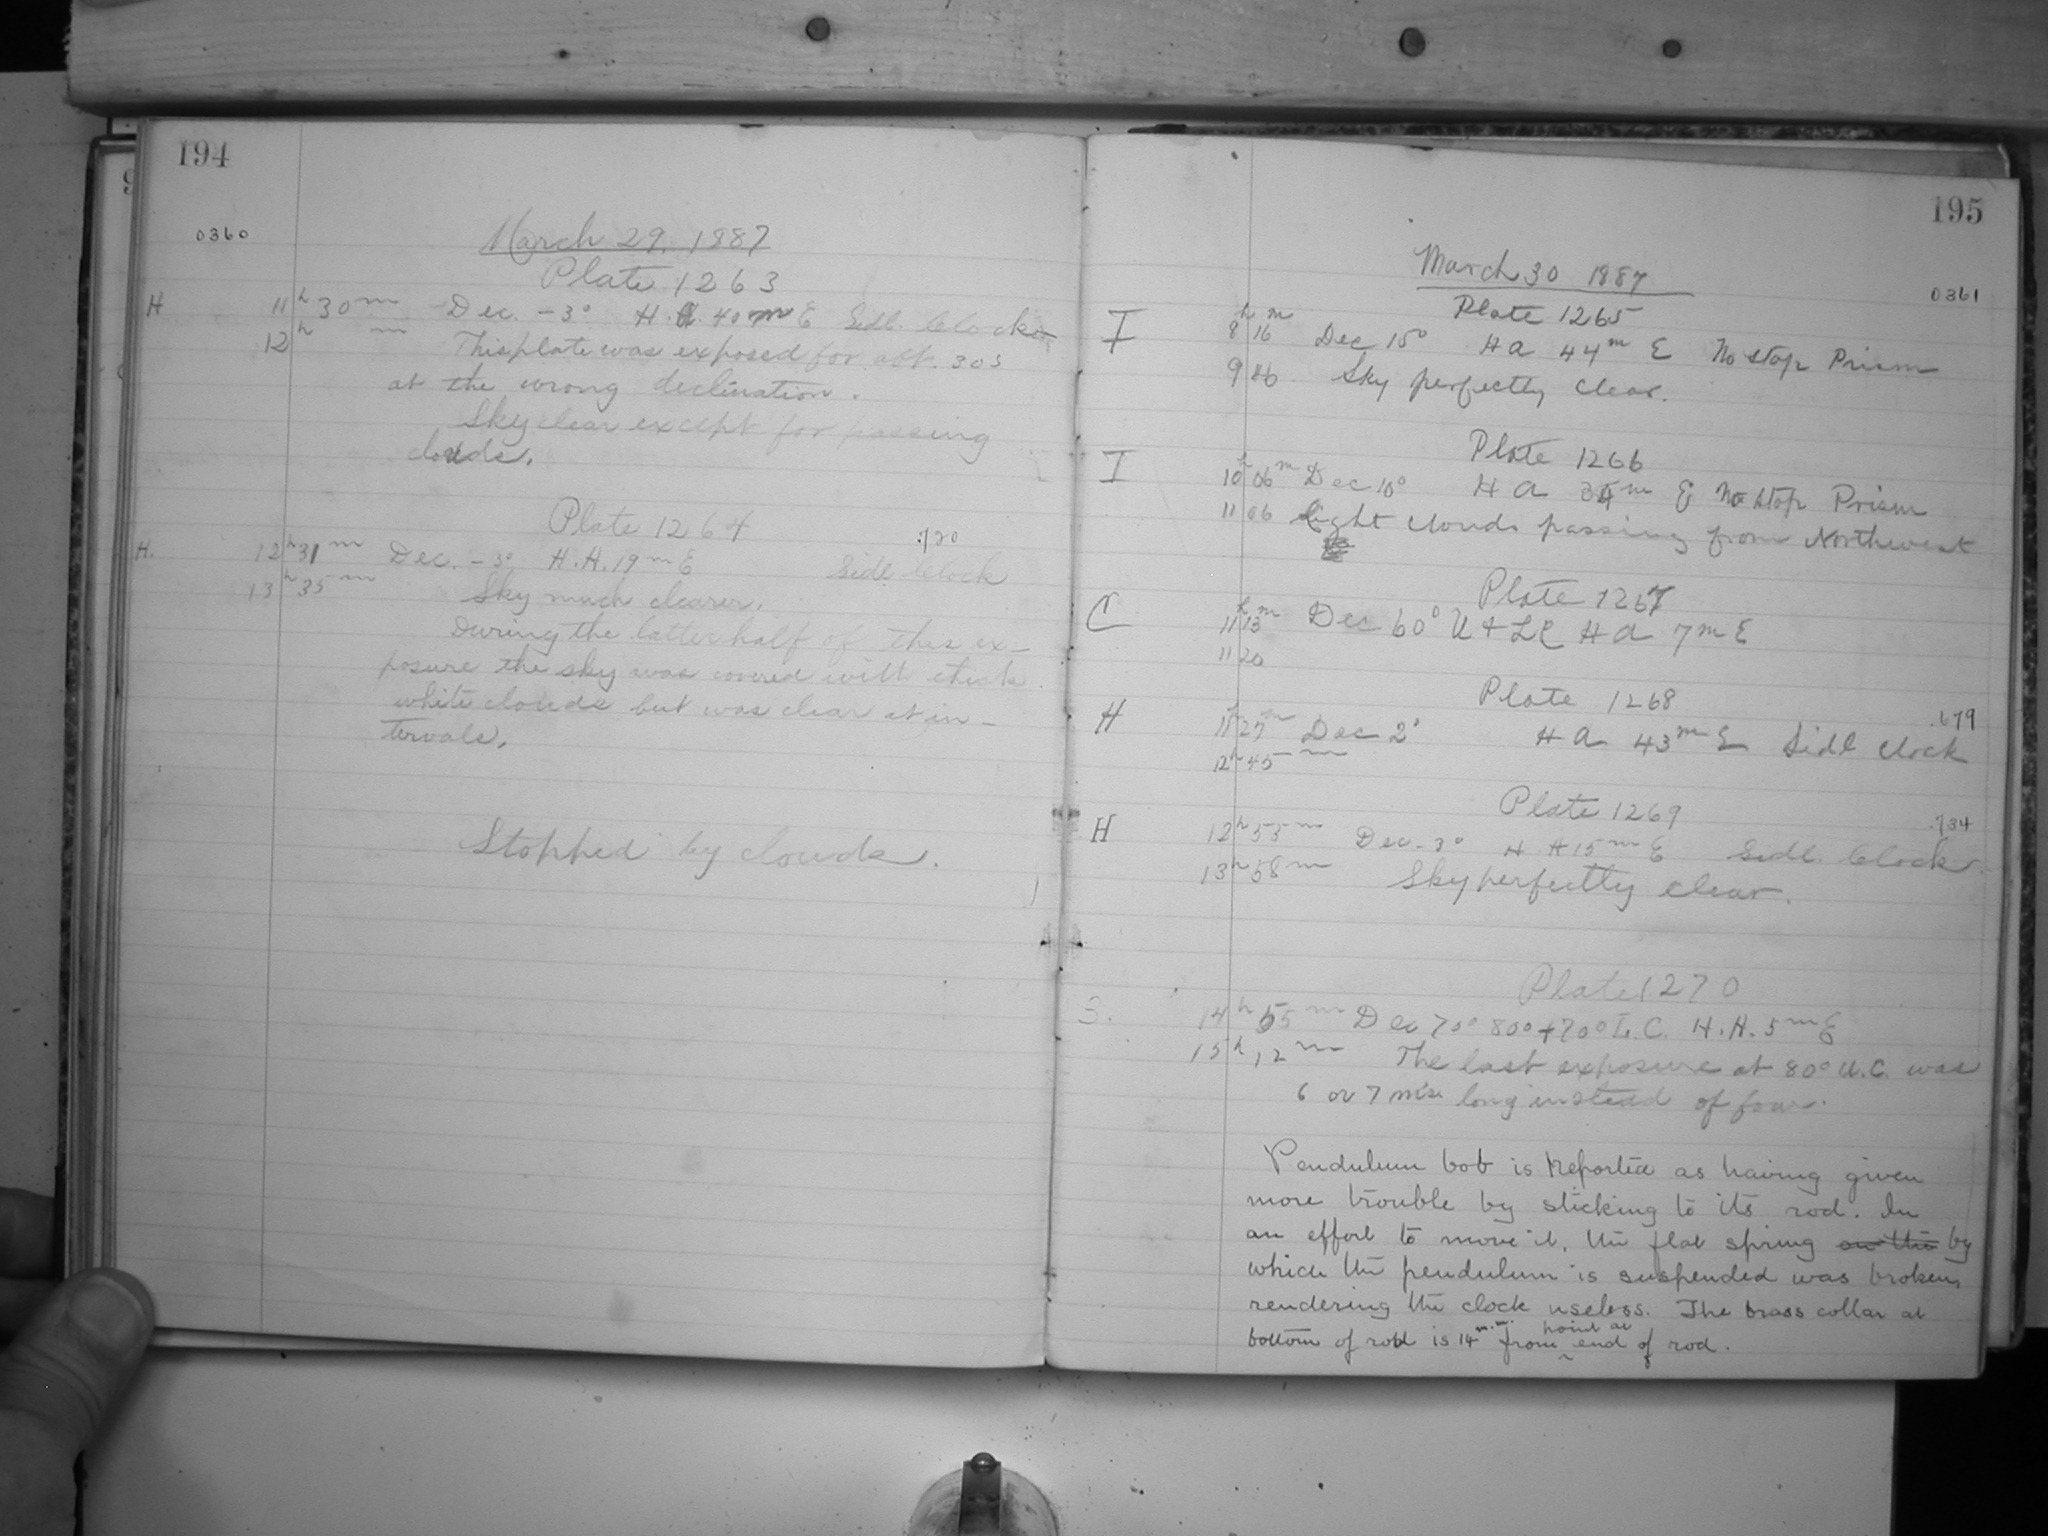 194
0360
March 29. 1887
Plate 1263
H 11h 30m Dec. -3° H.A. 40m E Sidl. Clock
12h m This plate was exposed for abt. 30s
at the wrong declination.
Sky clear except for passing
clouds.
Plate 1264
.720
H. 12h 31m Dec. -3° H.A. 19m E Sidl. Clock
13h 35m Sky much clearer.
During the latter half of this ex-
posure the sky was covered with thick
white clouds but was clear at in-
tervals.
Stopped by clouds.
195
March 30 1887
0361
Plate 1265
I 8h 16m Dec 15° H A 44m E No stop Prism
9 16 Sky perfectly clear.
Plate 1266
I 10h 06m Dec 10° H A 34m E No stop Prism
11 06 Light clouds passing from Northwest
Plate 1267
C 11h 13m Dec 60° U + L C H A 7m E
11 20
Plate 1268
.679
H 11h 27m Dec 2° H A 43m E Sidl Clock
12h 45m
Plate 1269
.734
H 12h 53m Dec -3° H A 15m E Sidl. Clock
13h 58m Sky perfectly clear.
Plate 1270
3. 14h 55m Dec 70° 80° + 70° L.C. H.A. 5m E
15h 12m The last exposure at 80° U.C. was
6 or 7 min long instead of four.
Pendulum bob is reported as having given
more trouble by sticking to its rod. In
an effort to move it, the flat spring on the by
which the pendulum is suspended was broken,
rendering the clock useless. The brass collar at
point at
bottom of rod is 14 m.m. from end of rod.